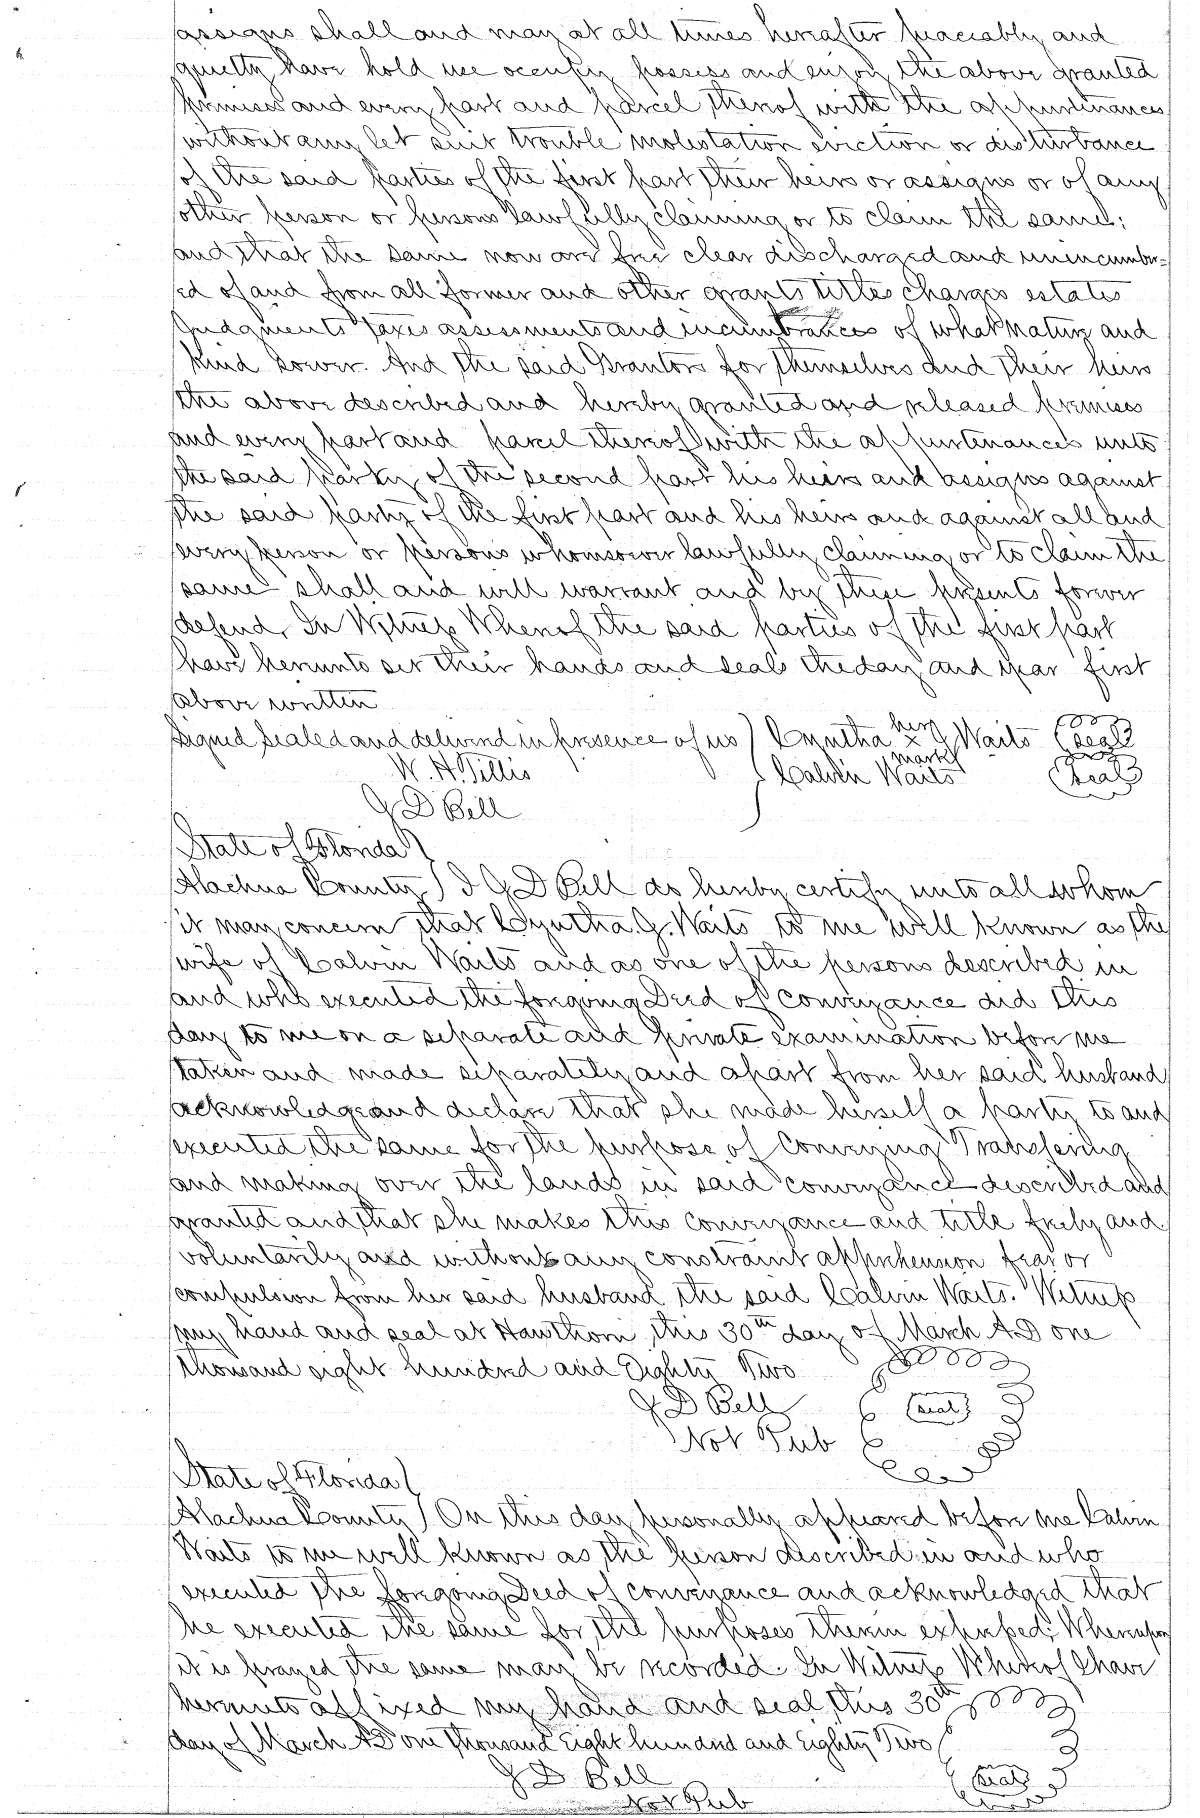 assigns shall and may at all times hereafter peaceably and
quietly have hold use occupy possess and enjoy the above granted
premises and every part and parcel thereof with the appurtenances
without any let suit trouble molestation eviction or disturbance
of the said parties of the first part their heirs or assigns or of any
other person or persons lawfully claiming or to claim the same;
and that the same now are free clear discharged and unincumber=
ed of and from all former and other grants titles charges estates
Judgments taxes assessments and incumbrances of what nature and
kind sower. And the said Grantors for themselves and their heirs
the above described and hereby granted and released premises
and every part and parcel thereof with the appurtenances unto
the said party of the second part his heirs and assigns against
the said party of the first part and his heirs and against all and
every person or persons whomsoever lawfully claiming or to claim the
same shall and will warrant and by these presents forever
defend. In Witness Whereof the said parties of the first part
have hereunto set their hands and seals the day and year first
above written
Signed Sealed and delivered in presence of us } Cyntha her x mark G Waits (Seal)
W. H. Tillis } Calvin Waits (Seal)
J D Bell
State of Florida }
Alachua County } I J D Bell do hereby certify unto all whom
it may concern that Cyntha G. Waits to me well known as the
wife of Calvin Waits and as one of the persons described in
and who executed the foregoing Deed of conveyance did this
day to me on a separate and private examination before me
taken and made separately and apart from her said husband
acknowledge and declare that she made herself a party to and
executed the same for the purpose of Conveying Transfering
and making over the lands in said conveyance described and
granted and that she makes this conveyance and title freely and
voluntarily and without any constraint apprehension fear or
compulsion from her said husband the said Calvin Waits. Witness
my hand and seal at Hawthorn this 30th day of March A.D one
thousand eight hundred and Eighty Two
J D Bell (seal)
Not Pub
State of Florida }
Alachua County } On this day personally appeared before me Calvin
Waits to me well known as the person described in and who
executed the foregoing Deed of conveyance and acknowledged that
he executed the same for the purposes therein expressed; Whereupon
it is prayed the same may be recorded. In Witness Whereof I have
hereunto affixed my hand and seal this 30th
day of March AD one thousand Eight hundred and Eighty Two
J D Bell (seal)
Not Pub